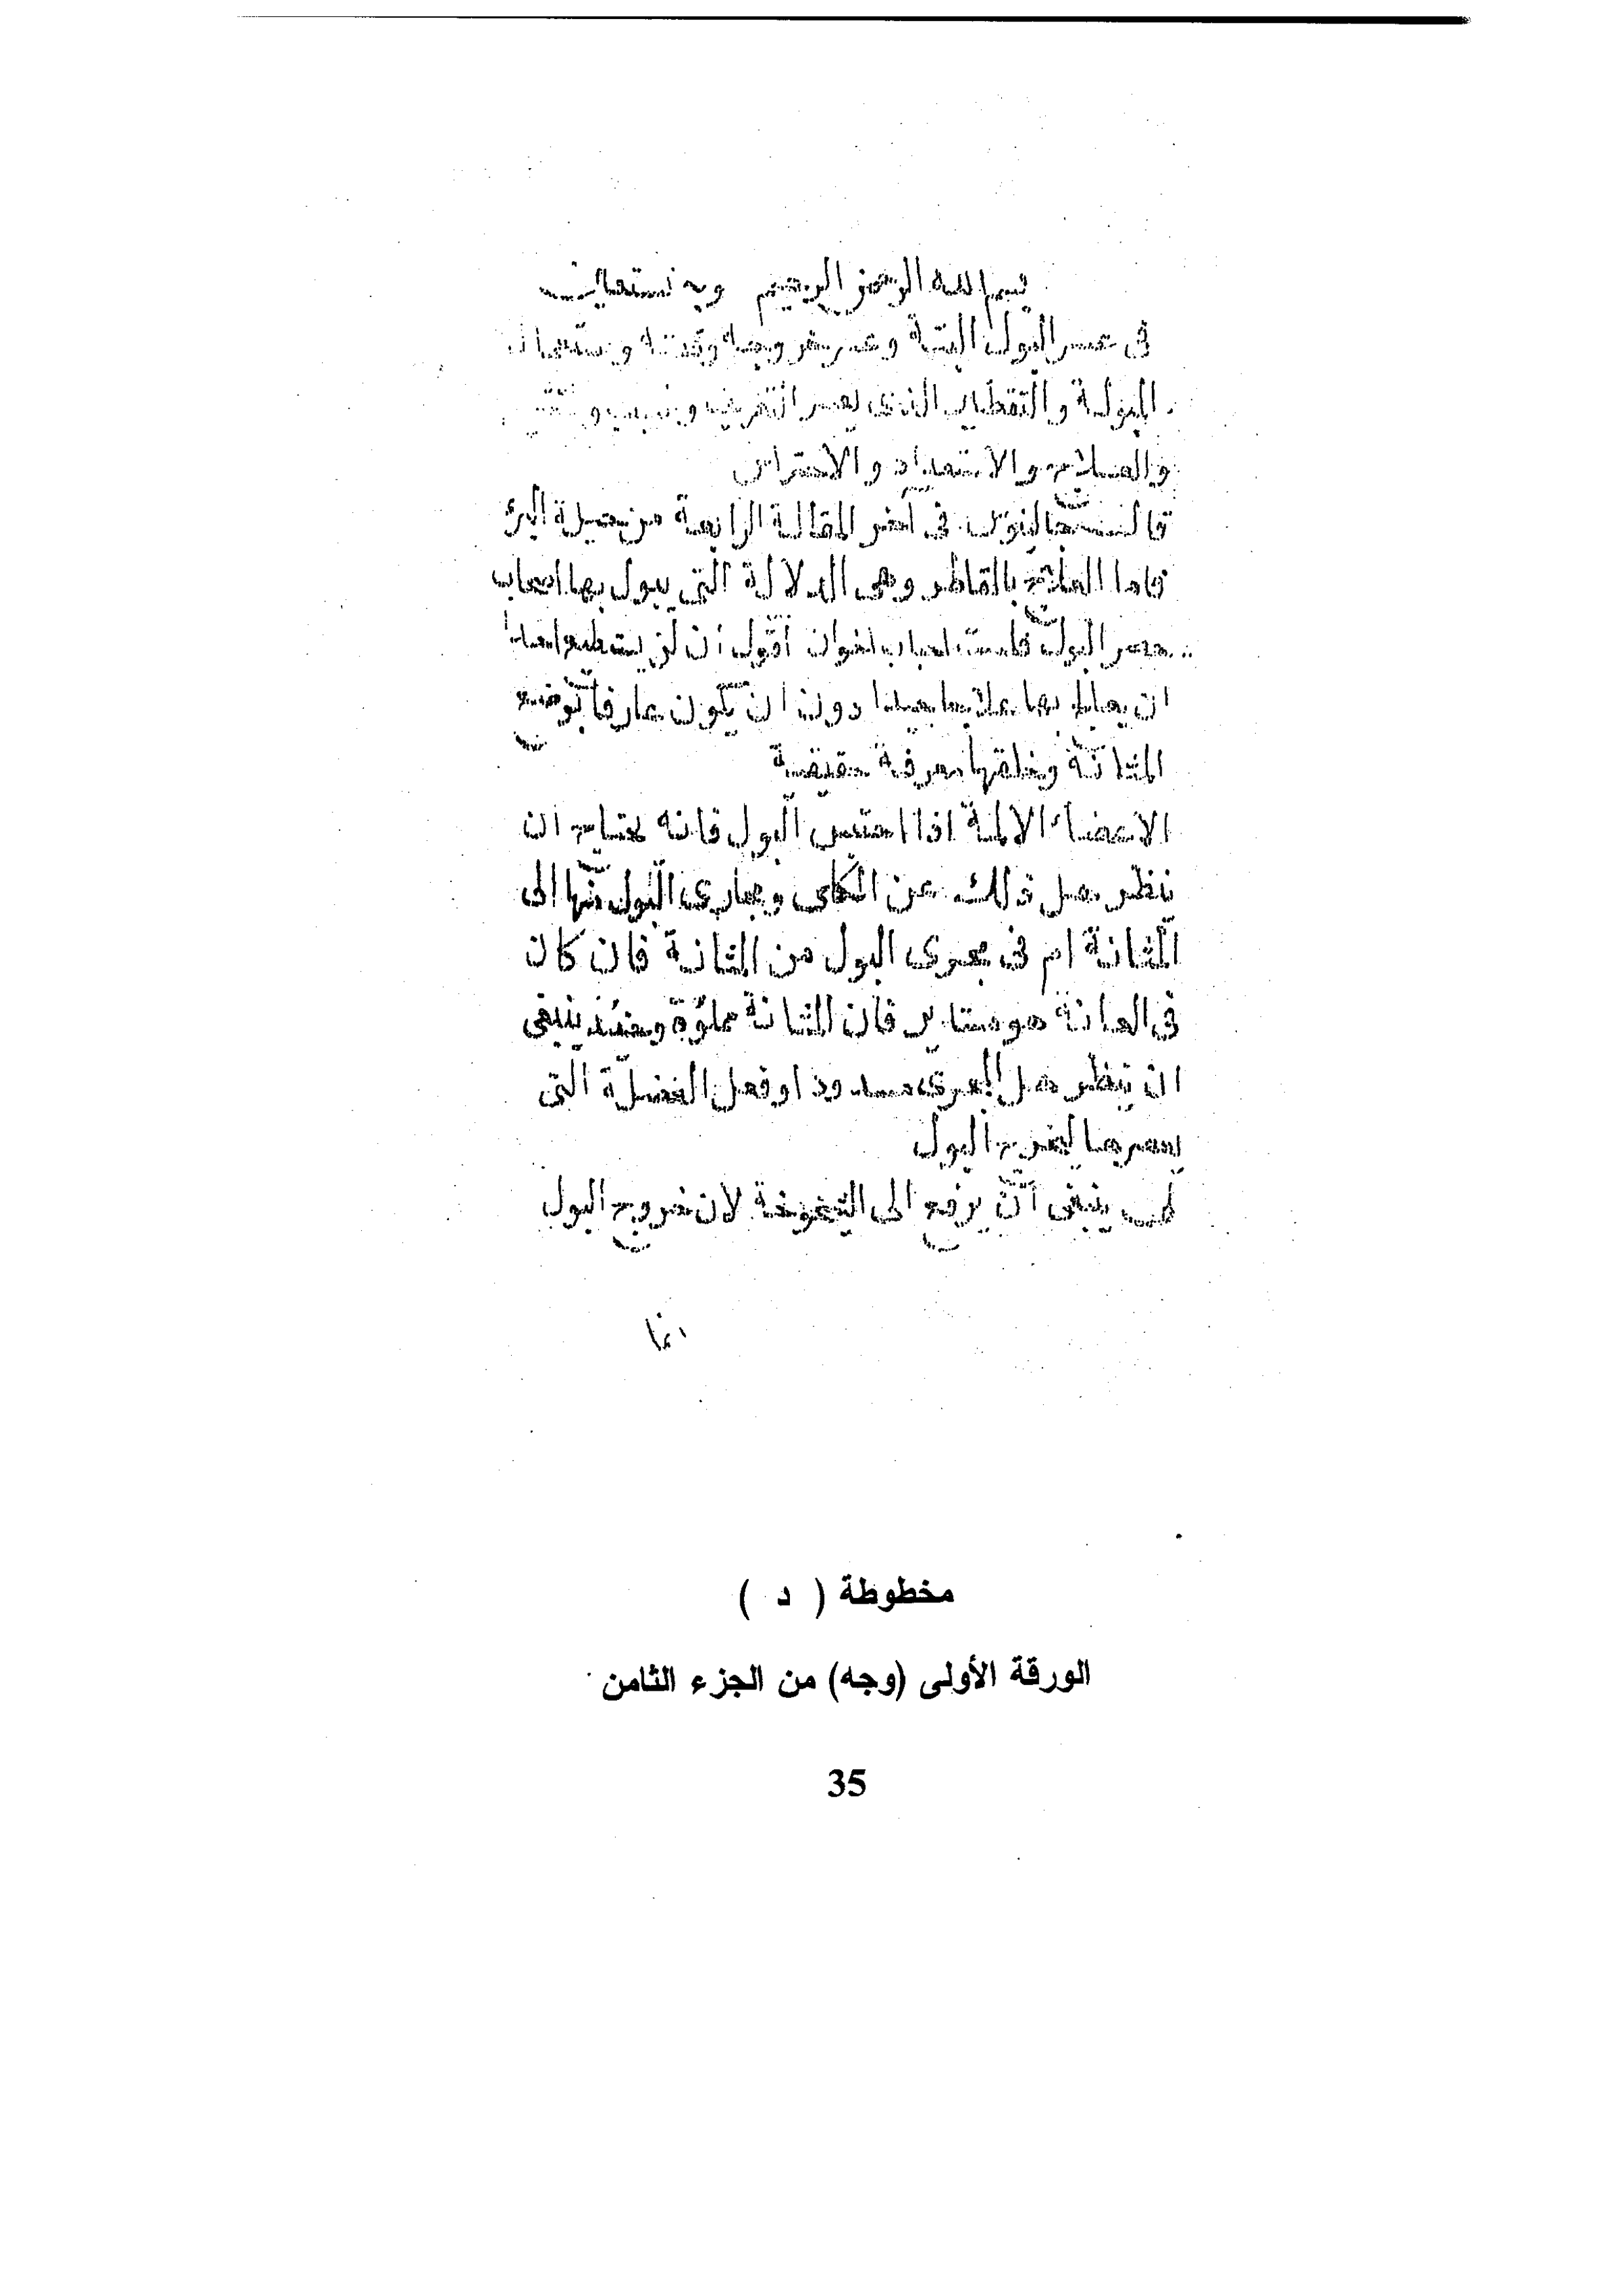 بسم الله الرحمن الرحيم وبه نستعين
في عسر البول البتة وعسر خروجه
المبولة والتقطير الذى
والعلاج والاستعداد والاحتراس
قال جالينوس في اخر المقالة الرابعة من حيلة البرؤ
فاما العلاج بالقاطر وهى الدلالة التى يبول بها اصحاب
عسر البول اقول ان لن
ان يعالج بها علاجا جيدا دون ان يكون عارفا بوضع
المثانة وخلقتها معرفة حقيقية
الاعضاء الالمة اذا احتبس البول فانه يحتاج ان
ننظر هل ذلك عن الكلى ومجارى البول منها الى
المثانة ام في مجرى البول من المثانة فان كان
في العانة فان المثانة مملوة وحينئذ ينبغى
ان ينظر هل المجرى مسدود او فعل العضلة التى
يعصرها ليخرج البول
لى ينبغى أن يرفع الى الشيخوخة لان خروج البول
انما
مخطوطة ( د )
الورقة الأولى (وجه) من الجزء الثامن
35